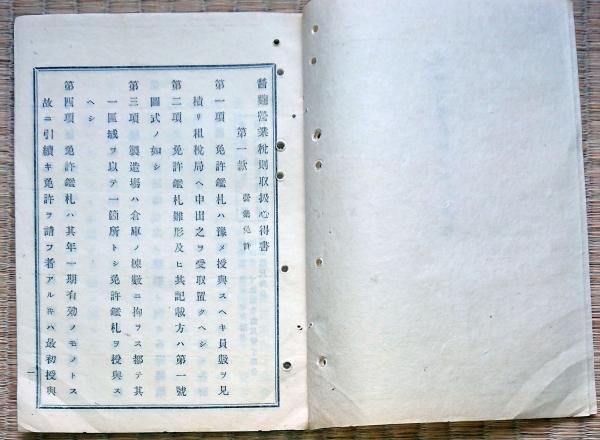 醤麹營業稅則取扱心得書
第一欵 營業免許
第一項 免許鑑札ハ豫メ授與スヘキ員數ヲ見
積リ租稅局ヘ申出之ヲ受取置クヘシ
第二項 免許鑑札雛形及ヒ其記載方ハ第一號
圖式ノ如シ
第三項 製造場ハ倉庫ノ棟數ニ拘ラス都テ其
一區域ヲ以テ一箇所トシ免許鑑札ヲ授與ス
ヘシ
第四項 免許鑑札ハ其年一期有効ノモノトス
故ニ引續キ免許ヲ請フ者アルキハ最初授與
一